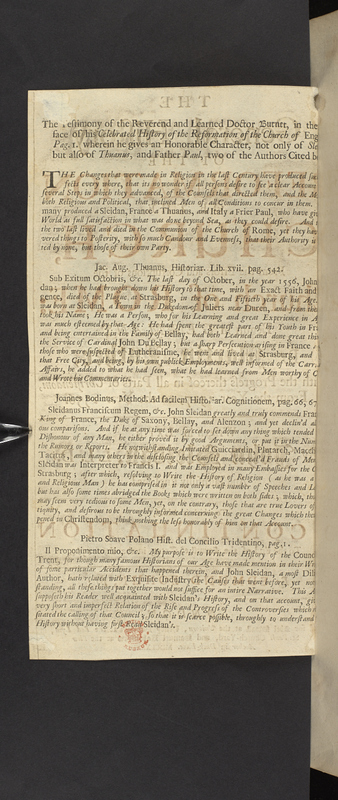 The Testimony of the Reverend and Learned Doctor Burnet, in the
face of his Celebrated History of the Reformation of the Church of Eng
Pag. 1. wherein he gives an Honorable Character, not only of Sle
but also of Thuanus, and Father Paul, two of the Authors Cited b
THE Changes that were made in Religion in the last Century have produced such
fects every where, that it is no wonder if all persons desire to see a clear Account
several Steps in which they advanced, of the Counsels that directed them, and the M
both Religious and Political, that inclined Men of all Conditions to concur in them.
many produced a Sleidan, France a Thuanus, and Italy a Frier Paul, who have given
World as full satisfaction in what was done beyond Sea, as they could desire. And
the two last lived and died in the Communion of the Church of Rome, yet they have
vered things to Posterity, with so much Candour and Evenness, that their Authority is
ted by none, but those of their own Party.
Jac. Aug. Thuanus, Historiar. Lib. xvii. pag. 542.
Sub Exitum Octobris, &c. The last day of October, in the year 1556, John
dan; when he had brought down his History to that time, with an Exact Faith and
gence, died of the Plague, at Strasburg, in the one and Fiftieth year of his Age.
was born at Sleidan, a Town in the Dukedom of Juliers near Duren, and from thence
took his Name; He was a Person, who for his Learning and great Experience in A
was much esteemed by that Age: He had spent the greatest part of his Youth in Fr
and being entertained in the Family of Bellay, had both Learned and done great things
the Service of Cardinal John Du Bellay; but a sharp Persecution arising in France
those who were suspected of Lutheranisme, he went and lived at Strasburg, and
that Free City, and being, by his own publick Employments, well informed of the Carr
Affairs, he added to what he had seen, what he had learned from Men worthy of C
and Wrote his Commentaries.
Joannes Bodinus, Method. Ad facilem Historiar. Cognitionem, pag. 66, 67
Sleidanus Franciscum Regem, &c. John Sleidan greatly and truly commends Fran
King of France, the Duke of Saxony, Bellay, and Alenzon; and yet declin'd
him comparisons. And if he at any time was forced to set down any thing which tended
Dishonour of any Man, he either proved it by good Arguments, or put it in the Num
the Rumors or Reports. He notwithstanding Imitated Guicciardin, Plutarch, Macch
Tacitus, and many others in the disclosing the Counsels and conceal'd Frauds of Men
Sleidan was Interpreter to Francis I. and was Employed in many Embassies for the C
Strasburg; after which, resolving to Write the History of Religion (as he was a
and Religious Man) he hat comprised in it not only a vast number of Speeches and L
but has also some times abridged the Books which were written on both sides; which, tho
may seem very tedious to some Men, yet, on the contrary, those that are true Lovers of
tiquity, and desirous to be throughly informed concerning the great Changes which then
pened to Christendom, think nothing the less honorably of him on that Account.
Pietro Soave Polano Hist. del Concilio Tridentino, pag. 1.
Il Proponimento mio, &c. My purpose is to Write the History of the Council
Trent, for though many famous Historians of our Age have made mention in their Wr
of some particular Accidents that happened therein, and John Sleidan, a most Dili
Author, hath related with Exquisite Industry the Causes that went before, yet
standing, all those things put together would not suffice for an intire Narrative. This A
supposeth his Reader well acquainted with Sleidan's History, and on that account, gi
very short and imperfect Relation of the Rise and Progress of the Controversies which
sioned the calling of that Council, so that it is scarce possible, throughly to understand
History without having first Read Sleidan's.